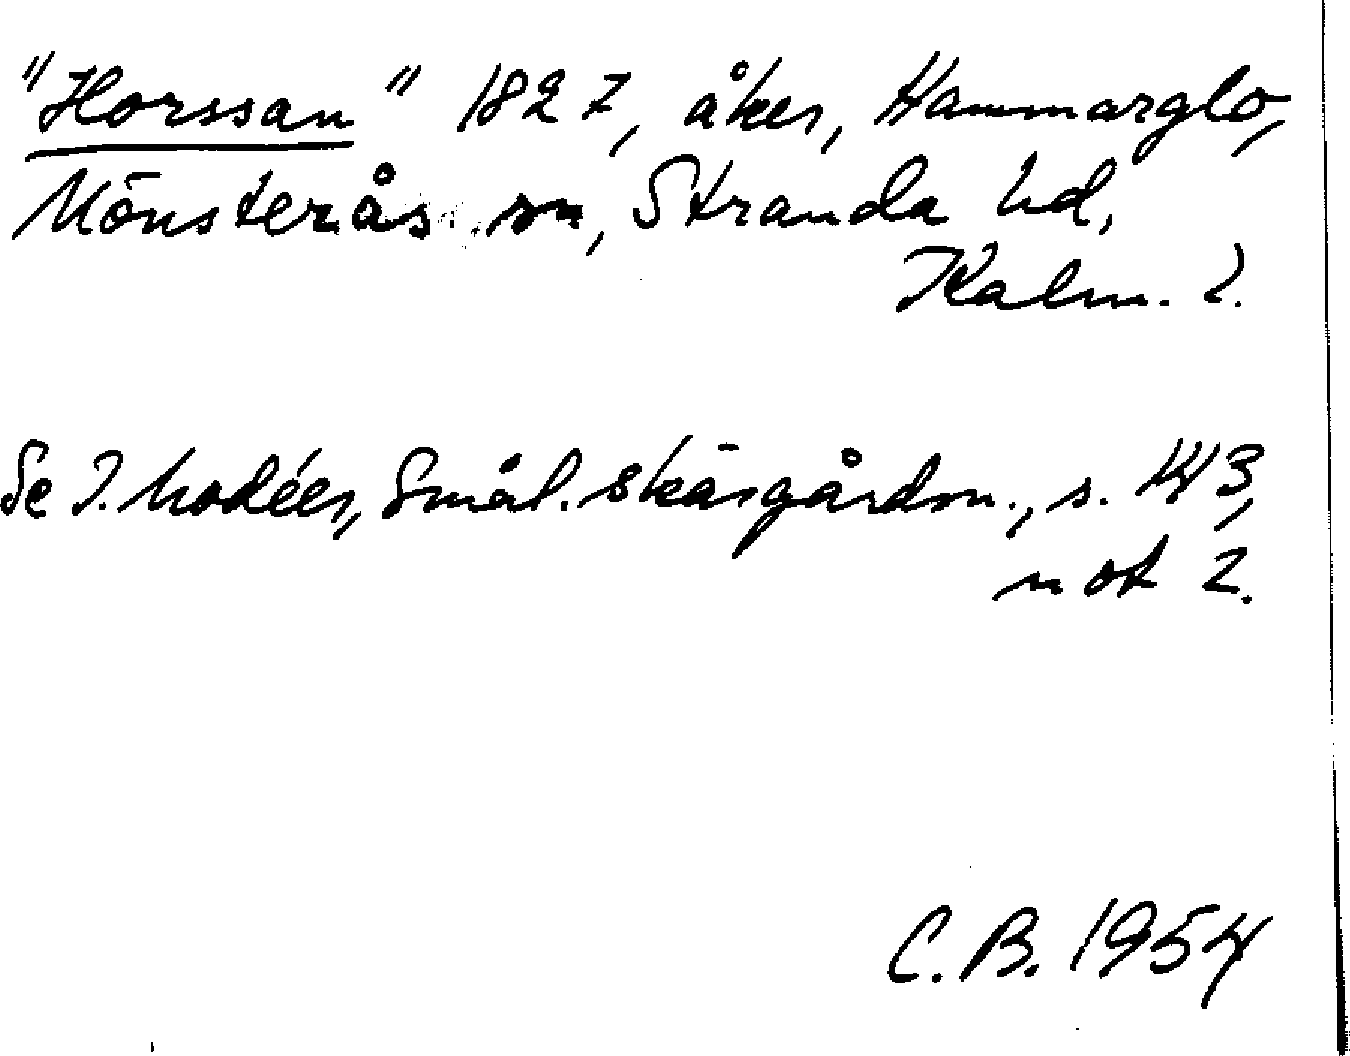 "Horssan" 1827, åker, Hammarglo,
Mönsterås sn, Stranda hd,
Kalm. l.
Se I. Modéer, Smål. skärgårdsn., s. 143,
not 2.
C.B. 1954